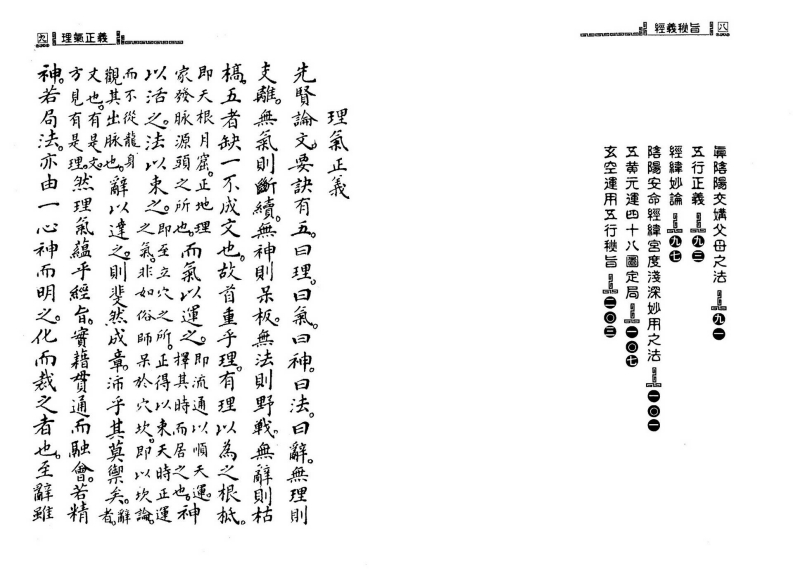 經義秘旨 八
眞陰陽交媾父母之法 九一
五行正義 九三
經緯妙論 九七
陰陽安命經緯宮度淺深妙用之法 一〇一
五黃元運四十八圖定局 一〇七
玄空運用五行秘旨 二〇三
九 理氣正義
理氣正義
先賢論文。要訣有五。曰理。曰氣。曰神。曰法。曰辭。無理則
支離。無氣則斷續。無神則呆板。無法則野戰。無辭則枯
槁。五者缺一不成文也。故首重乎理。有理以為之根柢。
即天根月窟。正地理家發脈源頭之所也。而氣以運之。即流通以順天運。擇其時而居之也。神
以活之。法以束之。即至立穴之所。正得以束天時正運之氣。非如俗師呆於穴坎。即以坎論。
而不從龍身觀其出脈也。辭以達之。則斐然成章。沛乎其莫禦矣。辭者。
文也。有是文。方見有是理。然理氣蘊乎經旨。實藉貫通而融會。若精
神。若局法。亦由一心神而明之。化而裁之者也。至辭雖